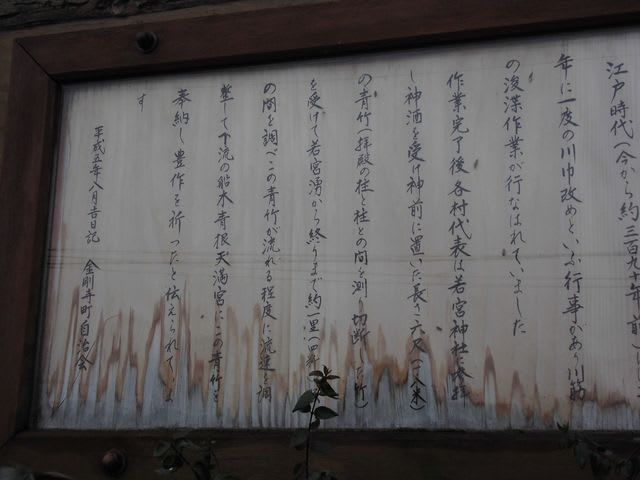 江戸時代(今から約三四九年前)
年に一度の川巾改めといふ行事があり川筋
の浚渫作業が行なはれていました
作業完了後各村代表は若宮神社に参拝
し神酒を受け神前に置いた長さ六尺(一、八米)
の青竹(拝殿の柱と柱との間を測り切断した竹)
を受けて若宮湧から終りまで約一里(四粁)
の間を調べこの青竹が流れる程度に流速を調
整して下流の船木青根天満宮にこの青竹を
奉納し豊作を祈ったと伝えられて
す
平成五年八月吉日記 金剛寺町自治会